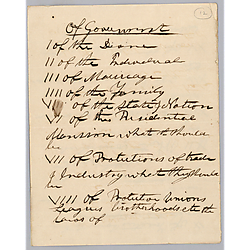 12
Of Government
I of the Divine
II of the Individual
III of Marriage
IIII of the Family
V of the State / Nation
V of the Presidential
Mansion what it should
be
VII of Protections of trade
& Industry what they should
be
VIII of Protective Unions
Leagues brotherhoods etc the
laws of